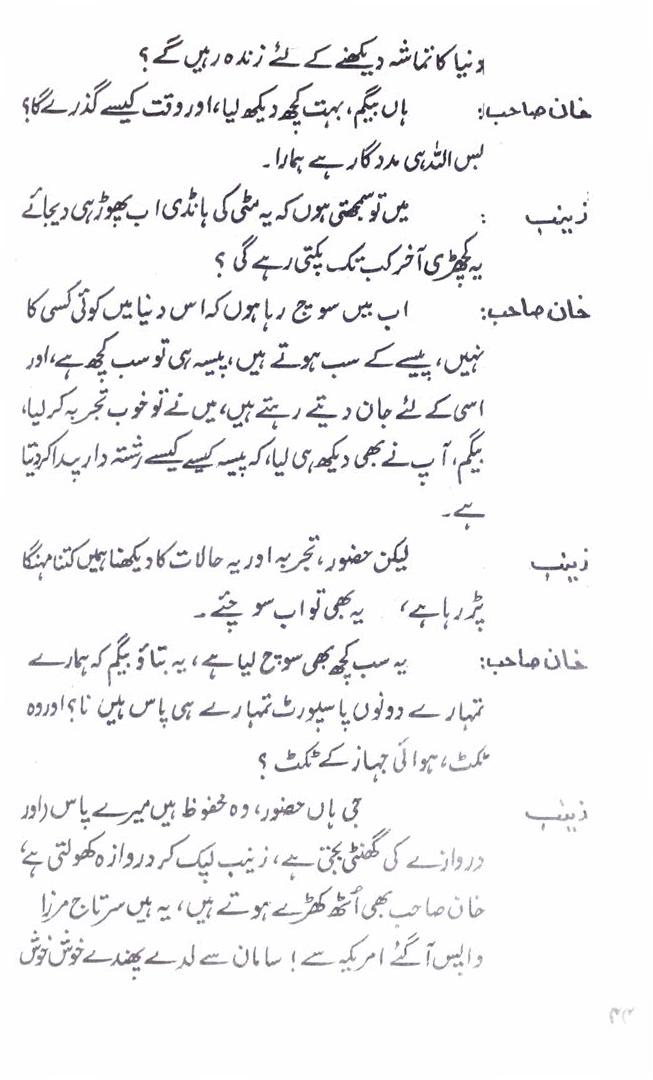 دنیا کا تماشہ دیکھنے کے لئے زندہ رہیں گے؟
خان صاحب: ہاں بیگم، بہت کچھ دیکھ لیا، اور وقت کیسے گذرے گا؟
بس اللہ ہی مددگار ہے ہمارا۔
زینب : میں تو سمجھتی ہوں کہ یہ مٹی کی ہانڈی اب پھوڑ ہی دیجائے
یہ کھچڑی آخر کب تک پکتی رہے گی ؟
خان صاحب: اب میں سوچ رہا ہوں کہ اس دنیا میں کوئی کسی کا
نہیں، پیسے کے سب ہوتے ہیں، پیسہ ہی تو سب کچھ ہے، اور
اسی کے لئے جان دیتے رہتے ہیں، میں نے تو خوب تجربہ کر لیا،
بیگم، آپ نے بھی دیکھ ہی لیا، کہ پیسہ کیسے کیسے رشتہ دار پیدا کر دیتا
ہے۔
زینب لیکن حضور، تجربہ اور یہ حالات کا دیکھنا ہمیں کتنا مہنگا
پڑ رہا ہے، یہ بھی تو اب سوچئے۔
خان صاحب: یہ سب کچھ بھی سوچ لیا ہے، یہ بتاؤ بیگم کہ ہمارے
تمہارے دونوں پاسپورٹ تمہارے ہی پاس ہیں نا؟ اور وہ
ٹکٹ، ہوائی جہاز کے ٹکٹ ؟
زینب جی ہاں حضور، وہ محفوظ ہیں میرے پاس (اور
دروازے کی گھنٹی بجتی ہے، زینب لپک کر دروازہ کھولتی ہے،
خان صاحب بھی اُٹھ کھڑے ہوتے ہیں، یہ ہیں سرتاج مرزا
واپس آگئے امریکہ سے! سامان سے لدے پھندے خوش خوش